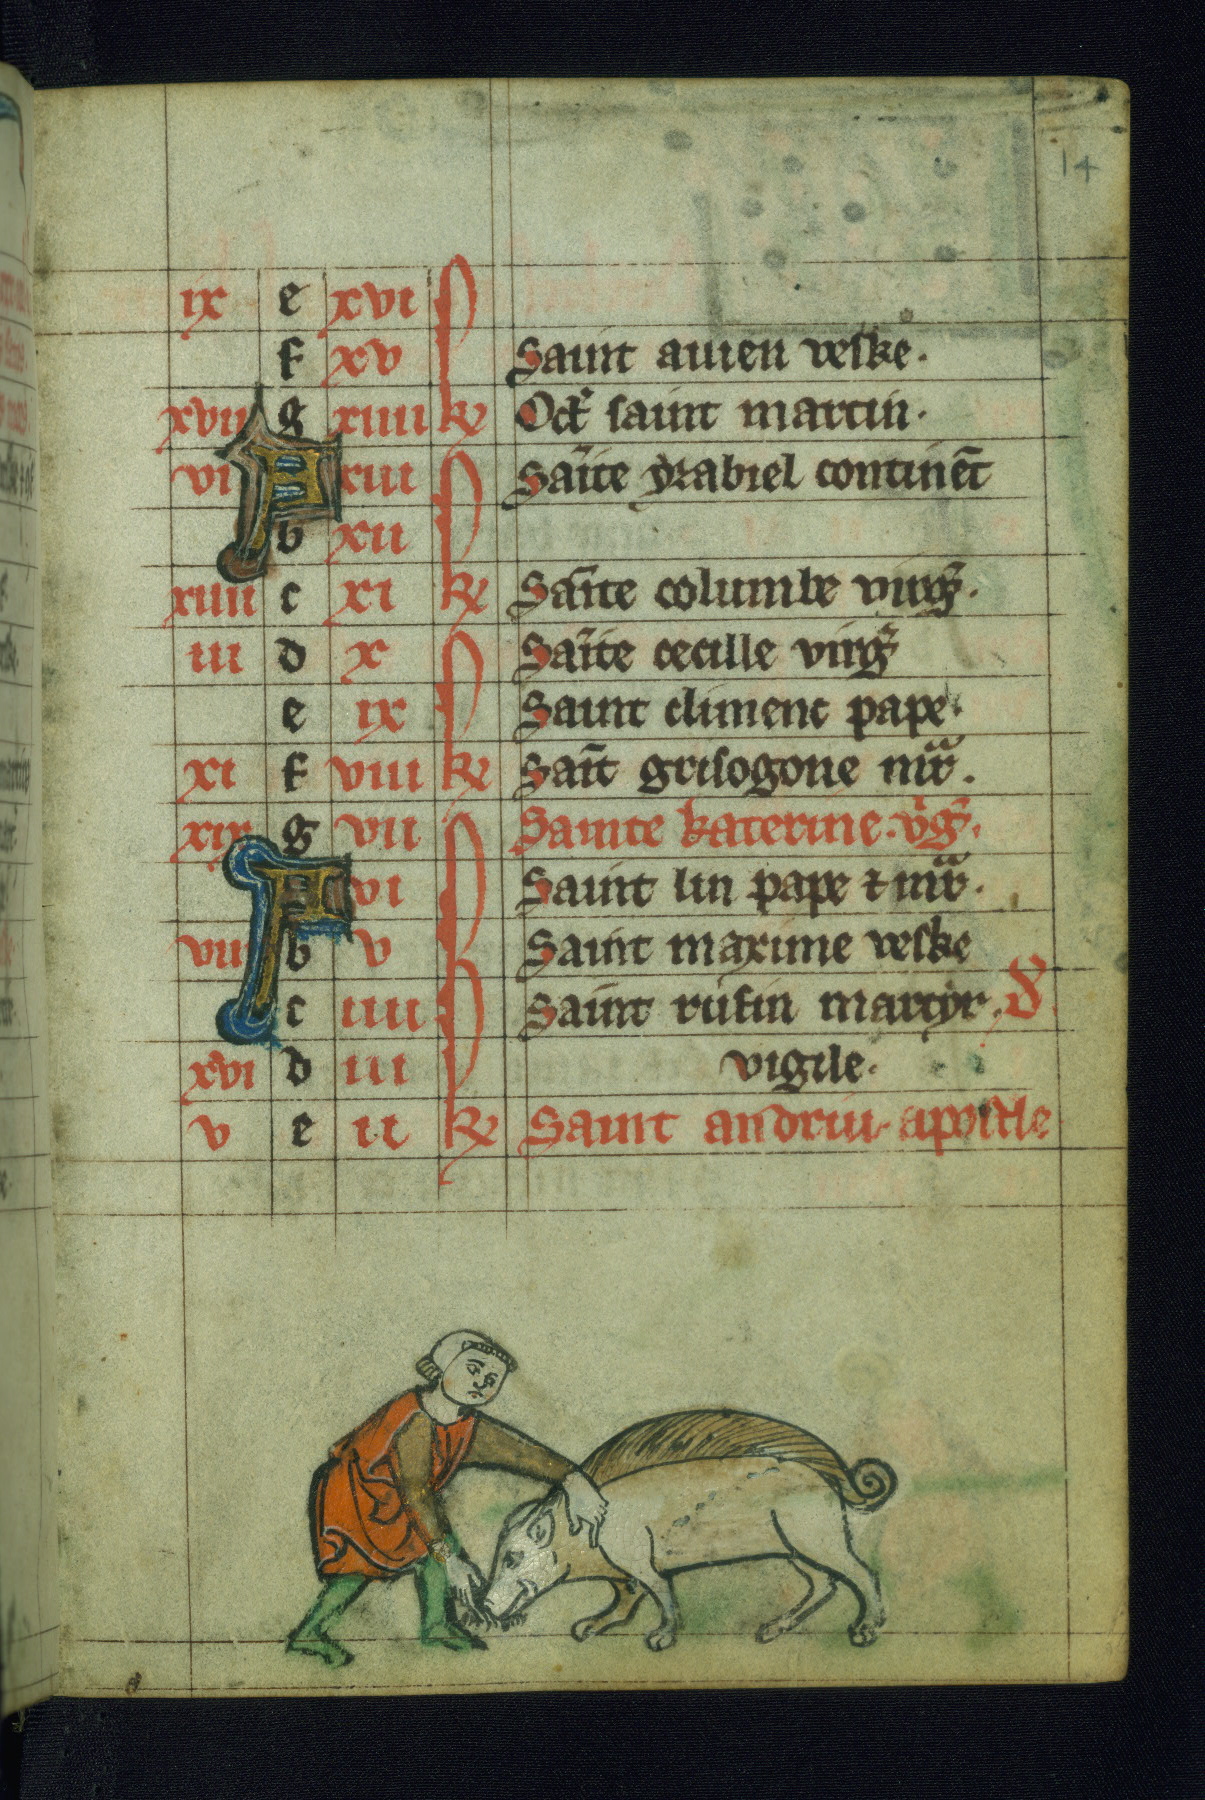 14
ix e xvi
f xv Saint auien veske.
xvii g xiiii kƚ Oct' saint martin.
vi A xiii Saīte ysabiel continēt
b xii
xiiii c xi kƚ Saīte columbe virg̃.
iii d x Saīte cecille virg̃
e ix Saint climent pape.
xi f viii kƚ Sait̄ grisogone mr̄.
xix g vii Sainte katerine. v̄g̃.
A vi Saint lin pape ⁊ mr̄.
viii b v Saint maxime veske
c iiii Saint rufin martyr. d.
xvi d iii vigile.
v e ii kƚ Saint andriu apostle